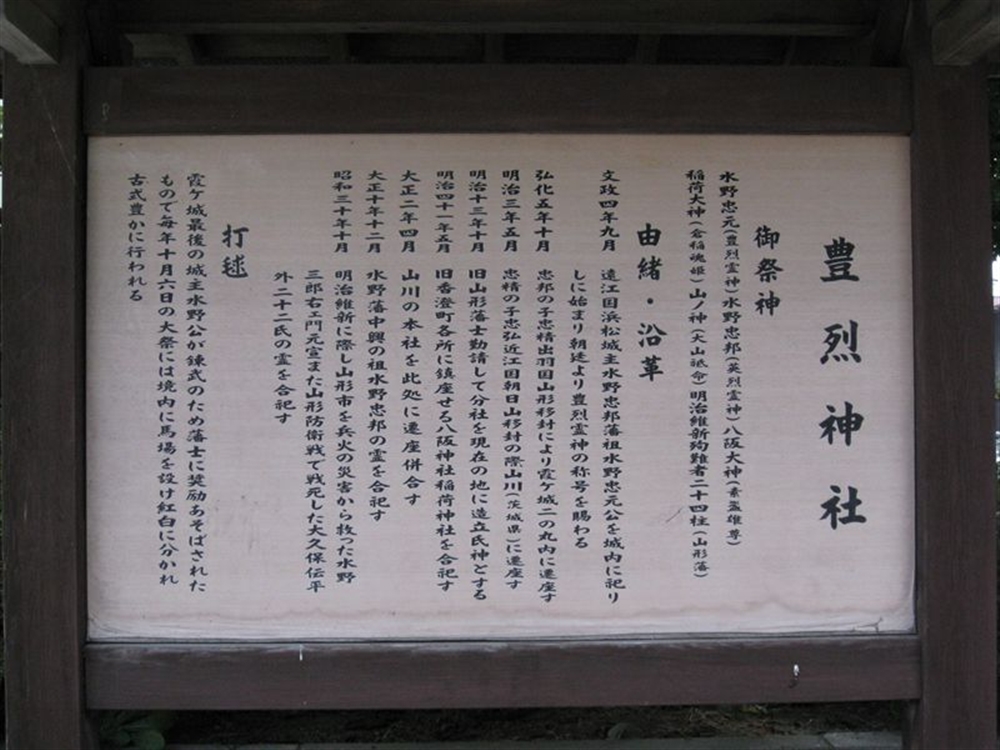 豊烈神社
御祭神
水野忠元(豊烈霊神)水野忠邦(英烈霊神)八阪大神(素盞雄尊)
稲荷大神(倉稲魂姫)山ノ神(大山祇命)明治維新殉難者二十四柱(山形藩)
由緒・沿革
文政四年九月 遠江国浜松城主水野忠邦藩祖水野忠元公を城内に祀り
しに始まり朝廷より豊烈霊神の称号を賜わる
弘化五年十月 忠邦の子忠精出羽国山形移封により霞ケ城二の丸内に遷座す
明治三年五月 忠精の子忠弘近江国朝日山移封の際山川(茨城県)に遷座す
明治十三年十月 旧山形藩士勧請して分社を現在の地に造立氏神とする
明治四十一年五月 旧香澄町各所に鎮座せる八阪神社稲荷神社を合祀す
大正二年四月 山川の本社を此処に遷座併合す
大正十年十二月 水野藩中興の祖水野忠邦の霊を合祀す
昭和三十年十月 明治維新に際し山形市を兵火の災害から救った水野
三郎右エ門元宣また山形防衛戦で戦死した大久保伝平
外二十二氏の霊を合祀す
打毬
霞ケ城最後の城主水野公が錬武のため藩士に奨励あそばされた
もので毎年十月六日の大祭には境内に馬場を設け紅白に分かれ
古式豊かに行われる